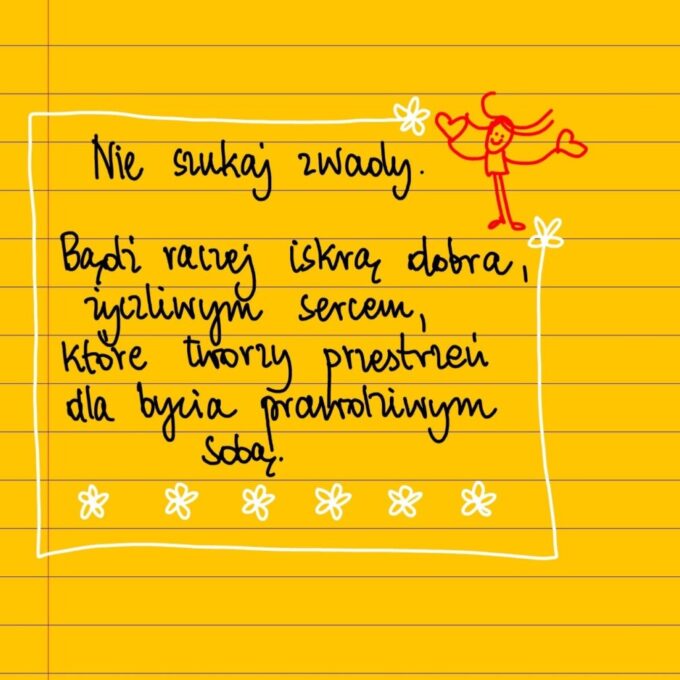 Nie szukaj zwady.
Bądź raczej iskrą dobra,
życzliwym sercem,
które tworzy przestrzeń
dla bycia prawdziwym
sobą.